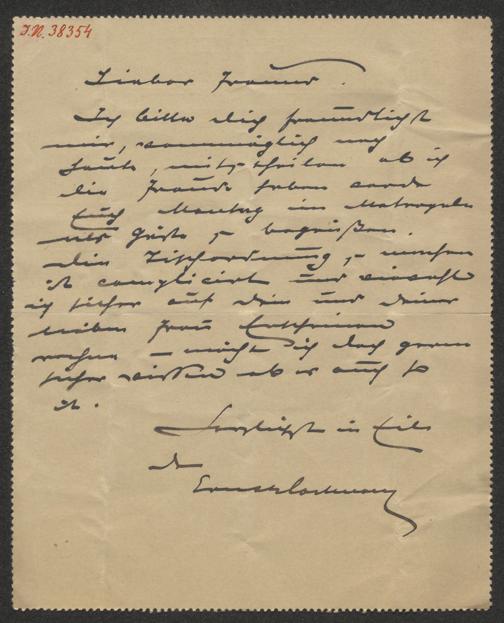 I.N. 38354
Lieber Freund.
Ich bitte dich freundlichst
mir, womöglich noch
heute, mitzutheilen ob ich
die Freude haben werde
Euch Montag im Metropole
als Gäste zu begrüßen.
Die Tischordnung zu machen
ist complicirt und obwohl
ich sicher auf dein und deiner
lieben Frau Erscheinen
rechne – möcht ich doch gerne
sicher wissen ob es auch so
ist.
Herzlichst in Eile
dein
Ernst